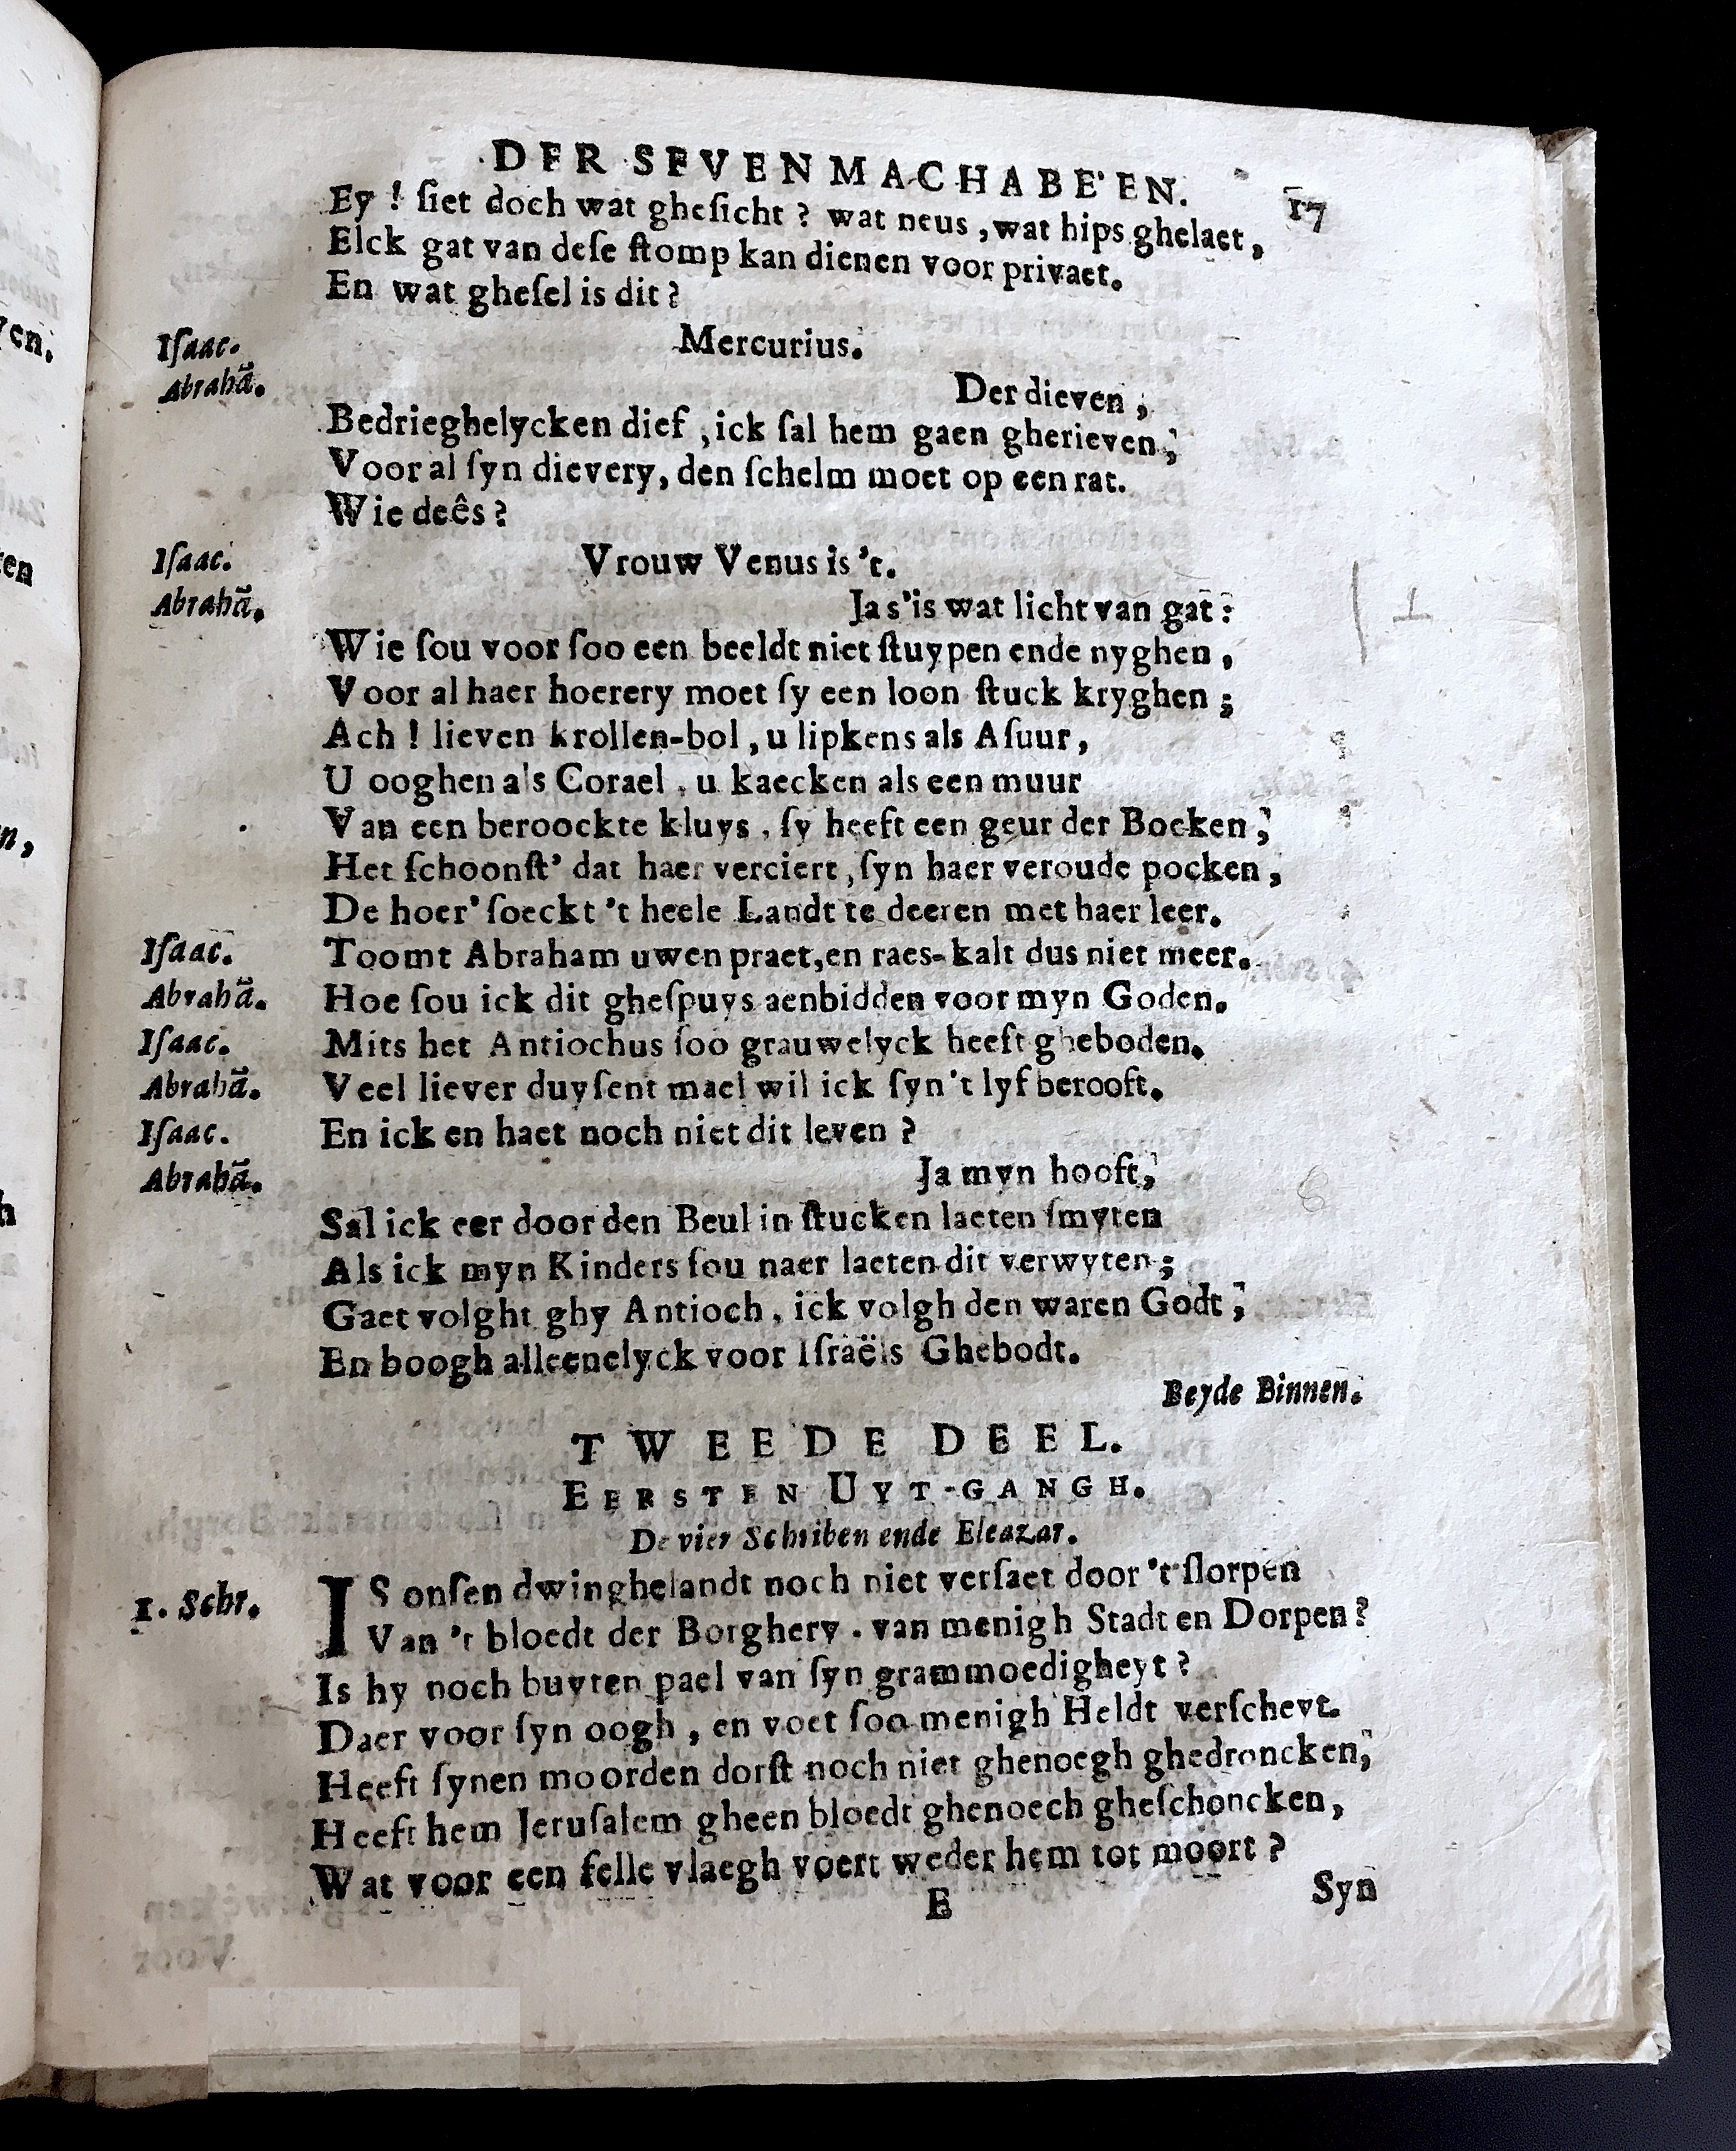 DER SEVEN MACHABE'EN. 17
Ey ! ſiet doch wat gheſicht ? wat neus , wat hips ghelaet ,
Elck gat van deſe ſtomp kan dienen voor privaet.
En wat gheſel is dit ?
Iſaac. Mercurius.
Abrahã. Der dieven ,
Bedrieghelycken dief , ick ſal hem gaen gherieven ;
Voor al ſyn dievery, den ſchelm moet op een rat.
Wie deês ?
Iſaac. Vrouw Venus is 't.
Abrahã. Ja s'is wat licht van gat :
Wie ſou voor ſoo een beeldt niet ſtuypen ende nyghen ,
Voor al haer hoerery moet ſy een loon ſtuck kryghen ;
Ach ! lieven krollen-bol , u lipkens als Aſuur ,
U ooghen als Corael , u kaecken als een muur
Van een beroockte kluys , ſy heeft een geur der Bocken ;
Het ſchoonſt' dat haer verciert , ſyn haer veroude pocken ,
De hoer' ſoeckt 't heele Landt te deeren met haer leer.
Iſaac. Toomt Abraham uwen praet, en raes-kalt dus niet meer.
Abrahã. Hoe ſou ick dit gheſpuys aenbidden voor myn Goden.
Iſaac. Mits het Antiochus ſoo grauwelyck heeft gheboden.
Abrahã. Veel liever duyſent mael wil ick ſyn 't lyf berooft.
Iſaac. En ick en haet noch niet dit leven ?
Abrahã. Ja myn hooft ;
Sal ick eer door den Beul in ſtucken laeten ſmyten
Als ick myn Kinders ſou naer laeten dit verwyten ;
Gaet volght ghy Antioch , ick volgh den waren Godt ;
En boogh alleenelyck voor Iſraëls Ghebodt.
Beyde Binnen.
TWEEDE DEEL.
EERSTEN UYT-GANGH.
De vier Schriben ende Eleazar.
1. Schr. IS onſen dwinghelandt noch niet verſaet door 't ſlorpen
Van 't bloedt der Borghery , van menigh Stadt en Dorpen ?
Is hy noch buyten pael van ſyn grammoedigheyt ?
Daer voor ſyn oogh , en voet ſoo menigh Heldt verſcheyt.
Heeft ſynen moorden dorſt noch niet ghenoegh ghedroncken ;
Heeft hem Jeruſalem gheen bloedt ghenoech gheſchoncken ,
Wat voor een felle vlaegh voert weder hem tot moort ?
E Syn